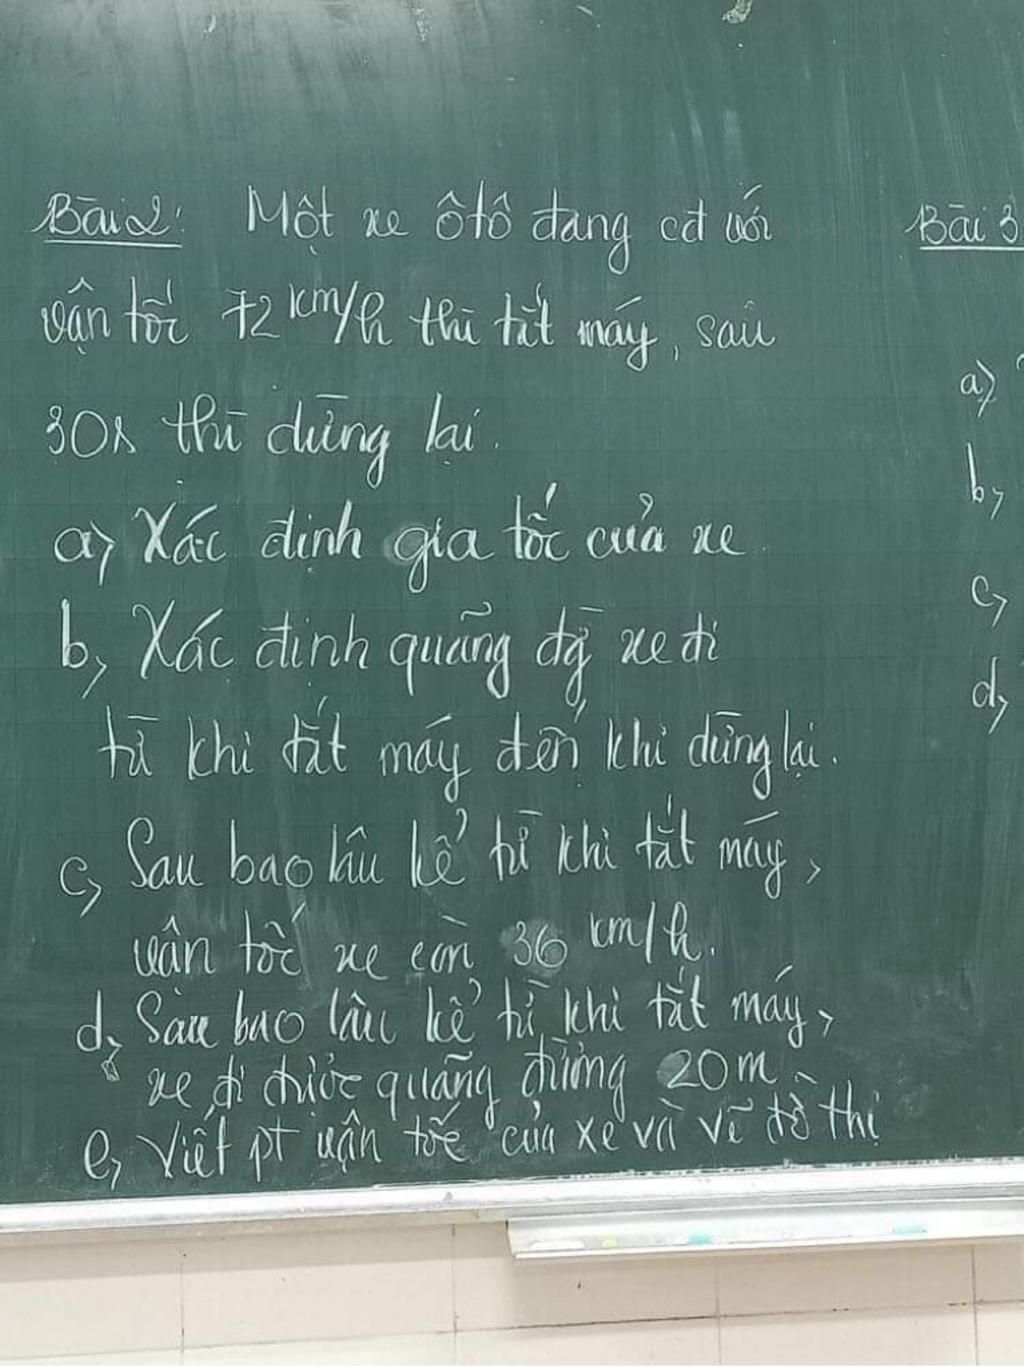 Bài 2: Một xe ôtô đang cđ với
vận tốc 72 km/h thì tắt máy, sau
30s thì dừng lại.
a, Xác định gia tốc của xe
b, Xác định quãng đg xe đi
từ khi tắt máy đến khi dừng lại.
c, Sau bao lâu kể từ khi tắt máy,
vận tốc xe còn 36 km/h.
d, Sau bao lâu kể từ khi tắt máy,
xe đi được quãng đường 20m
e, Viết pt vận tốc của xe và vẽ đồ thị
Bài 3
a,
b,
c,
d,